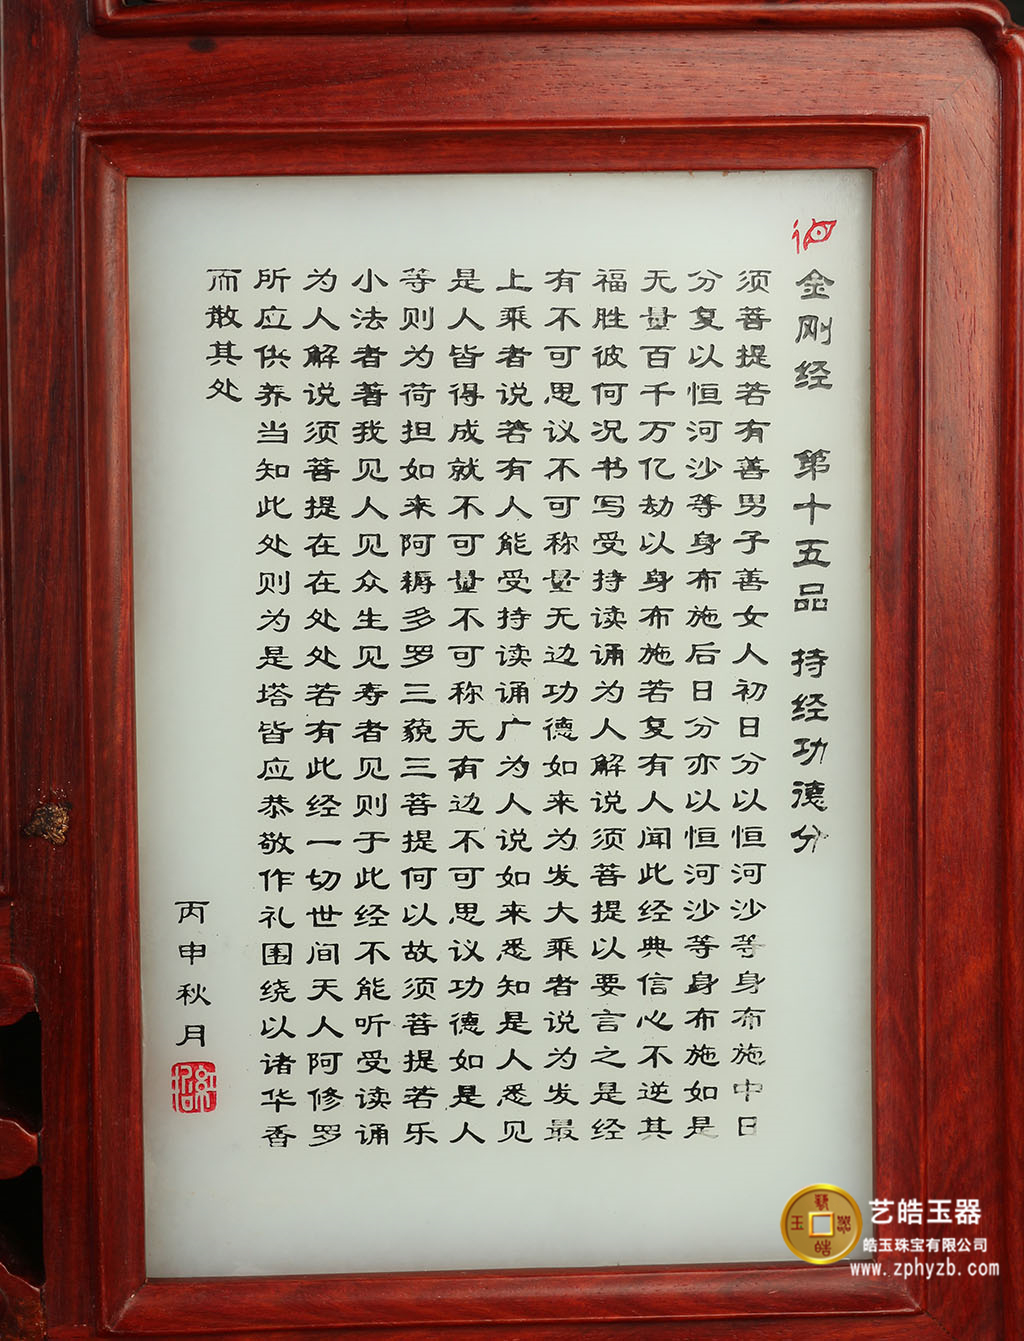 金刚经 第十五品 持经功德分
须菩提若有善男子善女人初日分以恒河沙等身布施中日
分复以恒河沙等身布施后日分亦以恒河沙等身布施如是
无量百千万亿劫以身布施若复有人闻此经典信心不逆其
福胜彼何况书写受持读诵为人解说须菩提以要言之是经
有不可思议不可称量无边功德如来为发大乘者说为发最
上乘者说若有人能受持读诵广为人说如来悉知是人悉见
是人皆得成就不可量不可称无有边不可思议功德如是人
等则为荷担如来阿耨多罗三藐三菩提何以故须菩提若乐
小法者著我见人见众生见寿者见则于此经不能听受读诵
为人解说须菩提在在处处若有此经一切世间天人阿修罗
所应供养当知此处则为是塔皆应恭敬作礼围绕以诸华香
而散其处
丙申秋月
艺皓玉器
皓玉珠宝有限公司
www.zphyzb.com